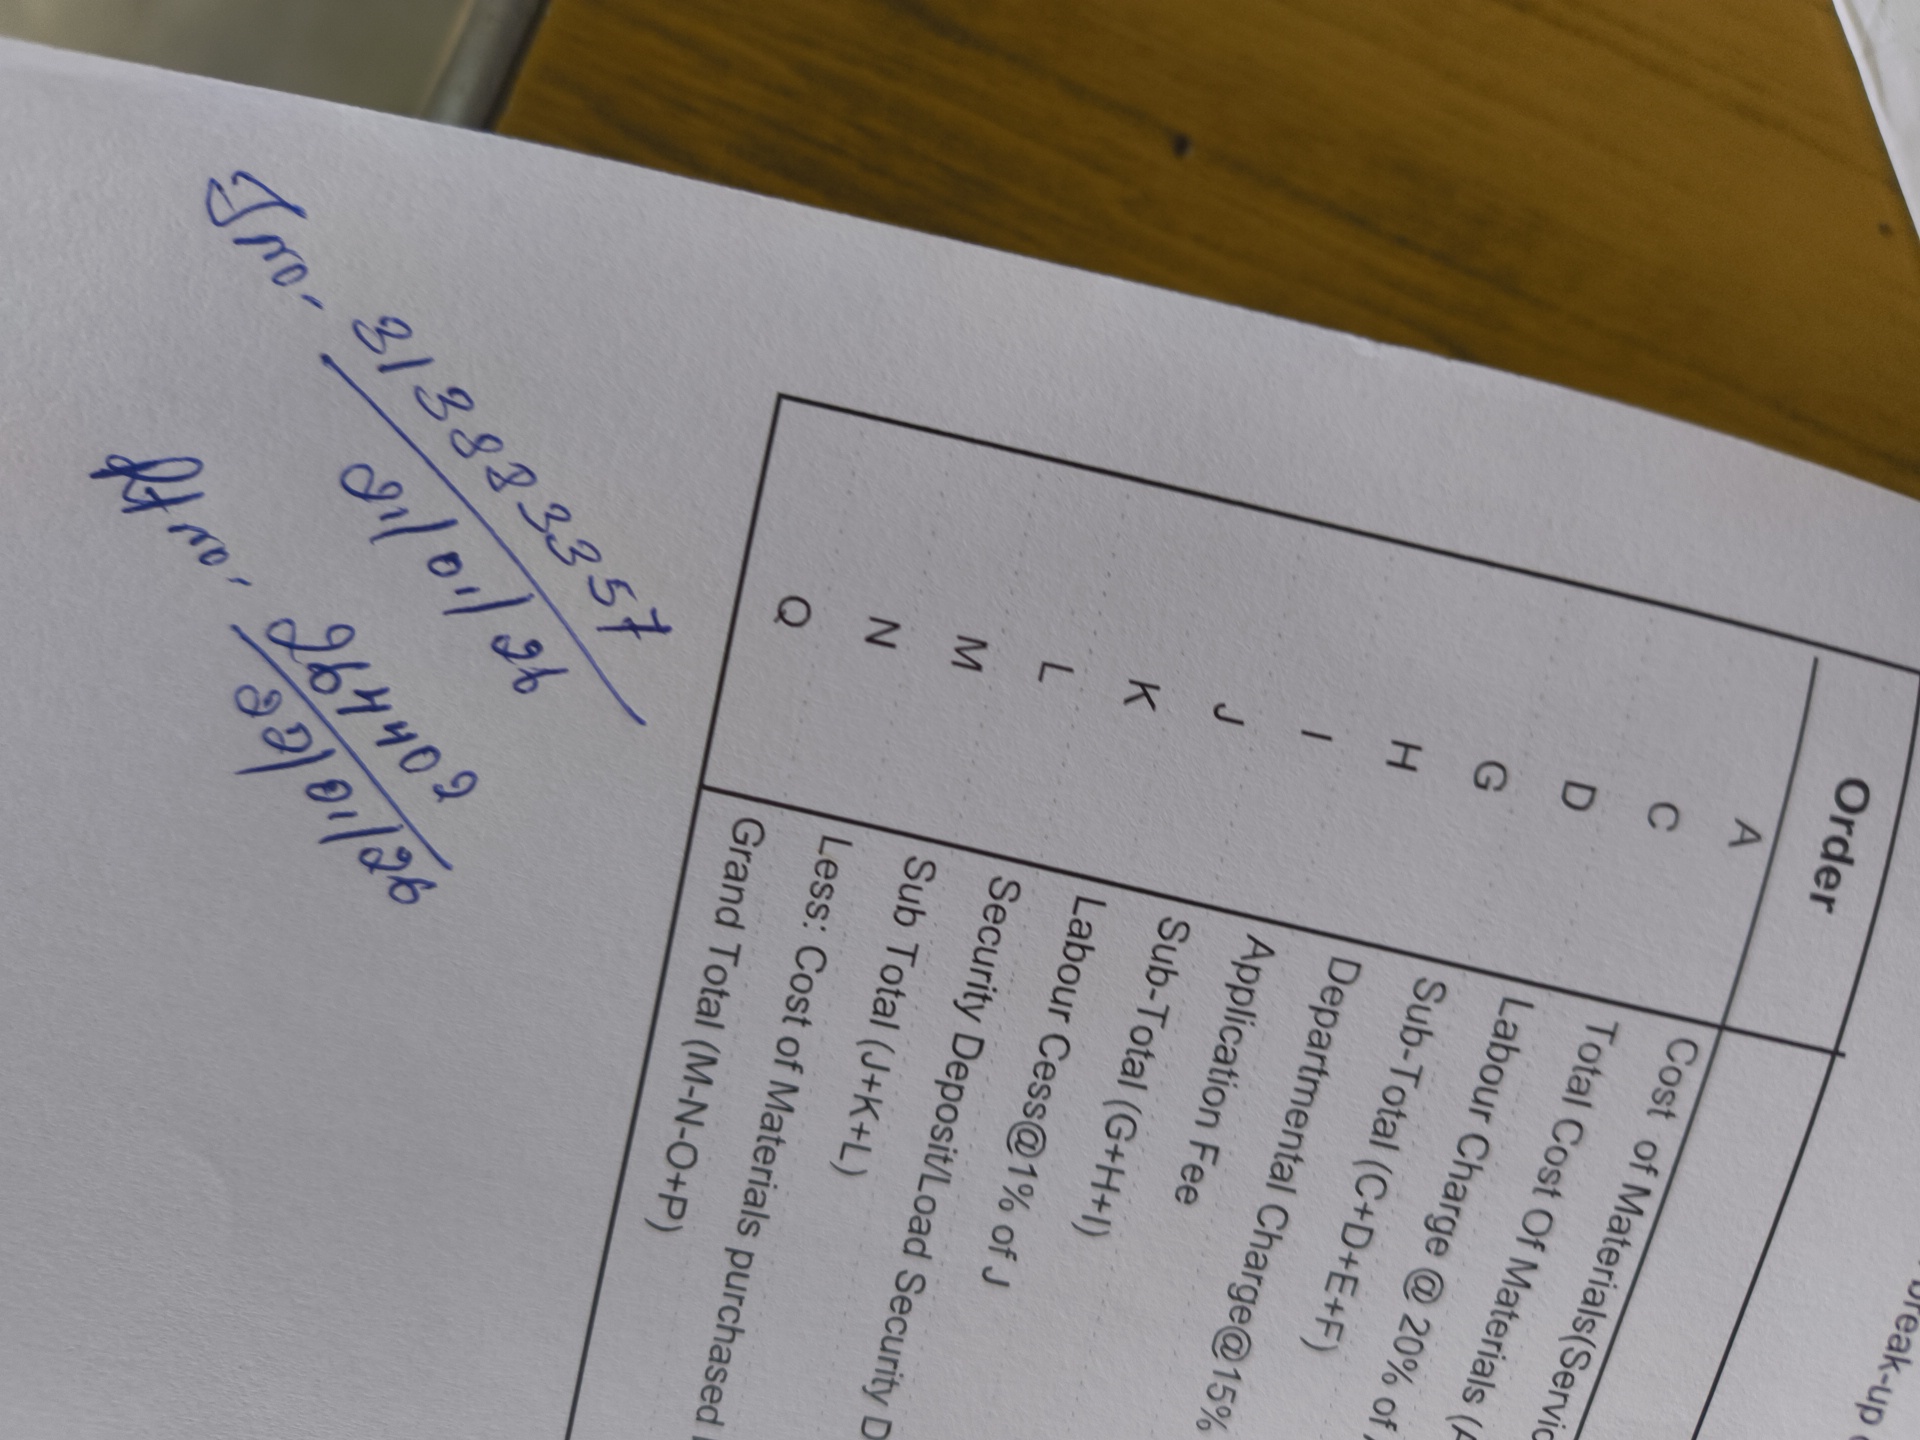 break-up
Order
A Cost of Materials(Servic
C Total Cost Of Materials (A
D Labour Charge @ 20% of
G Sub-Total (C+D+E+F)
H Departmental Charge@15%
I Application Fee
J Sub-Total (G+H+I)
K Labour Cess@1% of J
L Security Deposit/Load Security D
M Sub Total (J+K+L)
N Less: Cost of Materials purchased
Q Grand Total (M-N-O+P)
no. 313883357
21/01/26
no. 264402
22/01/26